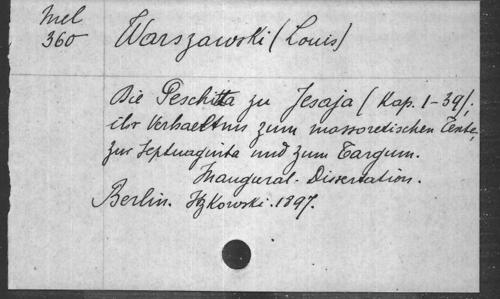 Mel
360
Warszawski (Louis)
Die Peschitta zu Jesaja (Kap. 1-39),
ihr Verhaeltnis zum massoretischen Texte,
zur Septuaginta und zum Targum.
Inaugural-Dissertation.
Berlin. Itzkowski. 1897.